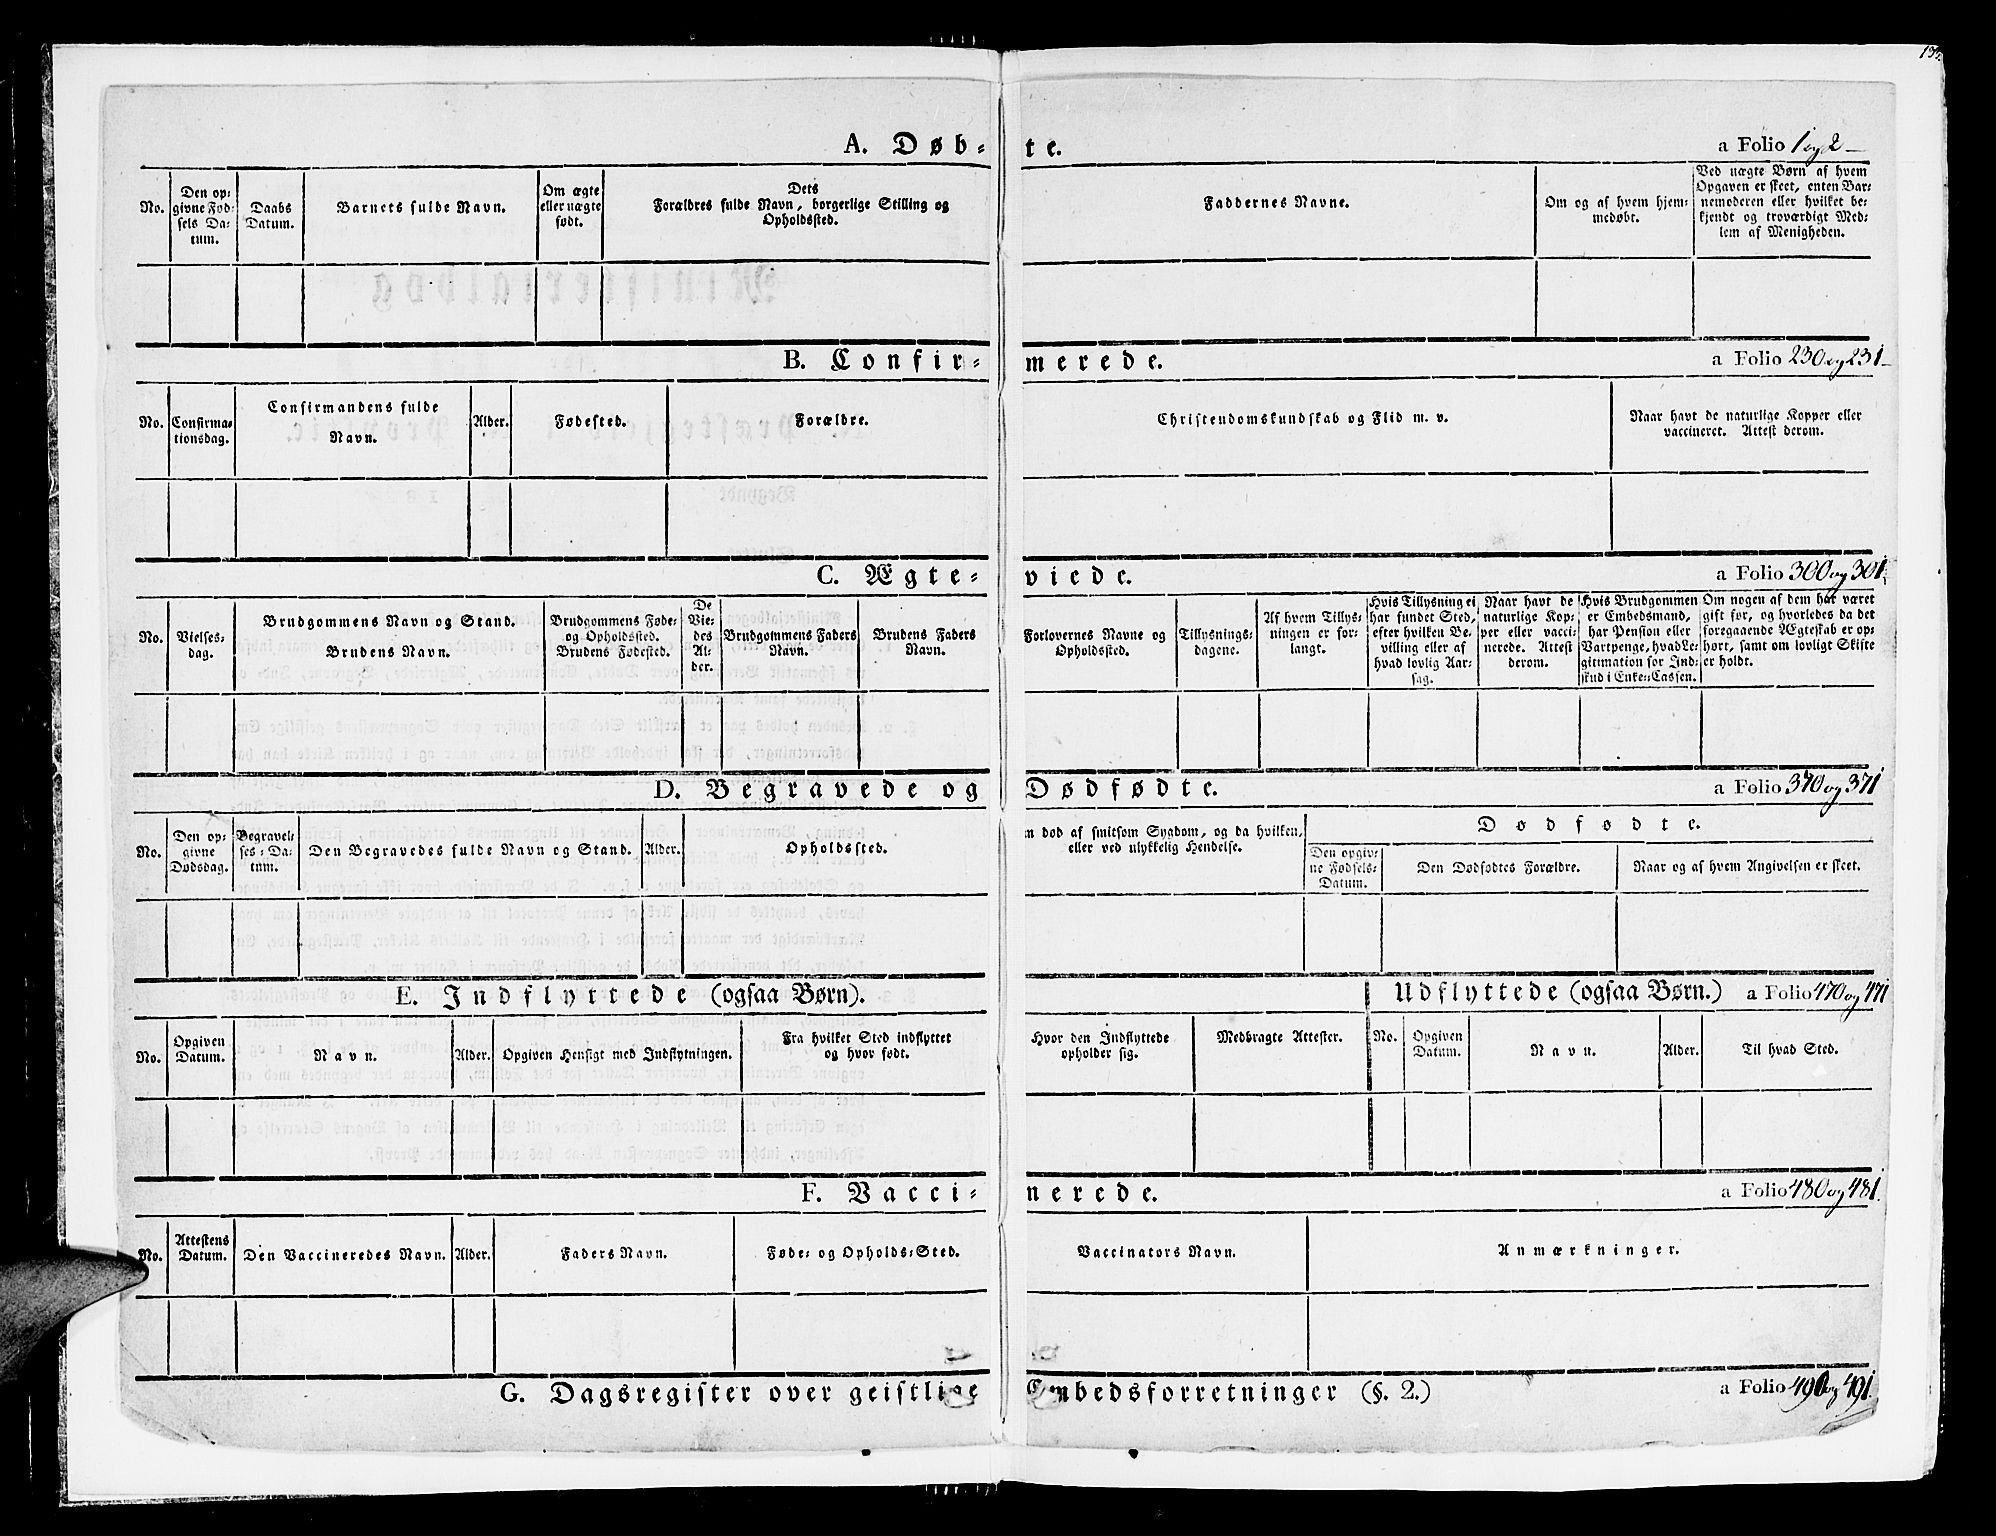 A. Døb-te. a Folio 1 og 2
No.
Den op-
givne Fød-
sels Da-
tum.
Daabs
Datum.
Barnets fulde Navn.
Om ægte
eller uægte
født.
Dets
Forældres fulde Navn, borgerlige Stilling og
Opholdssted.
Faddernes Navne.
Om og af hvem hjem-
medøbt.
Ved uægte Børn af hvem
Opgaven er skeet, enten Bar-
nemoderen eller hvilket be-
kjendt og troværdigt Med-
lem af Menigheden.
B. Confir-merede. a Folio 230 og 231
No.
Confirma-
tionsdag.
Confirmandens fulde
Navn.
Alder.
Fødested.
Forældre.
Christendomskundskab og Flid m. v.
Naar havt de naturlige Kopper eller
vaccineret. Attest derom.
C. Ægte-viede. a Folio 300 og 301
No.
Vielses-
dag.
Brudgommens Navn og Stand.
Brudens Navn.
Brudgommens Føde-
og Opholdssted.
Brudens Fødested.
De
Vie-
des
Al-
der.
Brudgommens Faders
Navn.
Brudens Faders
Navn.
Forlovernes Navne og
Opholdssted.
Tillysnings-
dagene.
Af hvem Tillys-
ningen er for-
langt.
Hvis Tillysning ei
har fundet Sted,
efter hvilken Be-
villing eller af
hvad lovlig Aar-
sag.
Naar havt de
naturlige Kop-
per eller vacci-
nerede. Attest
derom.
Hvis Brudgommen
er Embedsmand,
har Pension eller
Vartpenge, hvad Le-
gitimation for Ind-
skud i Enke-Cassen.
Om nogen af dem har været
gift før, og hvorledes da det
foregaaende Ægteskab er op-
hørt, samt om lovligt Skifte
er holdt.
D. Begravede og Dødfødte. a Folio 370 og 371
No.
Den op-
givne
Dødsdag.
Begravel-
ses-Da-
tum.
Den Begravedes fulde Navn og Stand.
Alder.
Opholdssted.
m død af smitsom Sygdom, og da hvilken,
eller ved ulykkelig Hendelse.
Dødfødte.
Den opgiv-
ne Fødsels-
Datum.
Den Dødfødtes Forældre.
Naar og af hvem Angivelsen er skeet.
E. Indflyttede (ogsaa Børn). Udflyttede (ogsaa Børn.) a Folio 470 og 471
No.
Opgiven
Datum.
Navn.
Alder.
Opgiven Hensigt med Indflytningen.
Fra hvilket Sted indflyttet
og hvor født.
Hvor den Indflyttede
opholder sig.
Medbragte Attester.
No.
Opgiven
Datum.
Navn.
Alder.
Til hvad Sted.
F. Vacci-nerede. a Folio 480 og 481.
No.
Attestens
Datum.
Den Vaccineredes Navn.
Alder.
Faders Navn.
Føde- og Opholds-Sted.
Vaccinators Navn.
Anmærkninger.
G. Dagsregister over geistlige Embedsforretninger (§. 2.) a Folio 490 og 491.